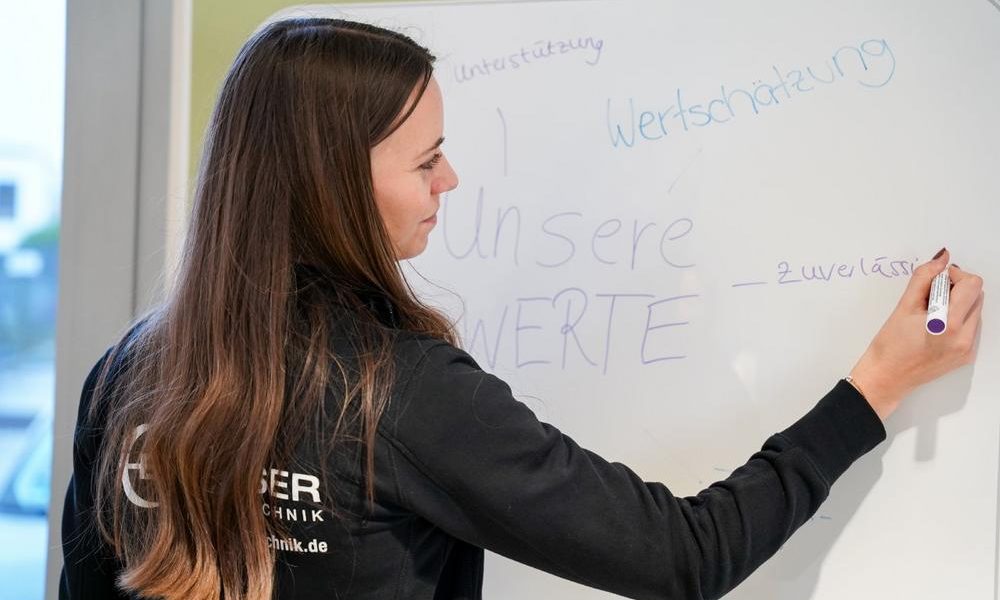 Unterstützung
Wertschätzung
Unsere
WERTE
– zuverlässi
SER
CHNIK
chnik.de